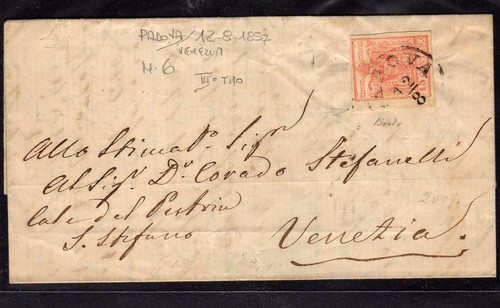 PADOVA / 12-8-1857
VENEZIA
N. 6
III° TIPO
PADOVA
12/8
Allo Stimat.º Sigr
Al Sigr. Dr. Corado Stefanelli
Cale del Pestrin
S. Stefano
Venezia.